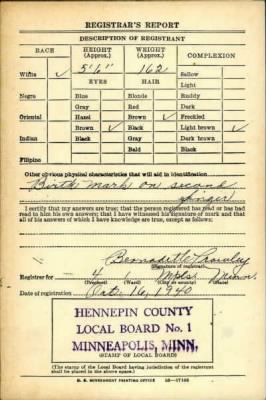 REGISTRAR'S REPORT
DESCRIPTION OF REGISTRANT
RACE HEIGHT (Approx.) WEIGHT (Approx.) COMPLEXION
White ✓ 162 Sallow
EYES HAIR Light
Negro Blue Blonde Ruddy
Gray Red Dark
Oriental Hazel Brown ✓ Freckled
Brown ✓ Black Light brown ✓
Indian Black Gray Dark brown
Bald Black
Filipino
Other obvious physical characteristics that will aid in identification
Birth mark on second
finger
I certify that my answers are true; that the person registered has read or has had
read to him his own answers; that I have witnessed his signature or mark and that
all of his answers of which I have knowledge are true, except as follows:
Bernadette
(Signature of registrar)
Registrar for 4 Mpls Minn.
(Precinct) (Ward) (City or county) (State)
Date of registration Oct. 16, 1940
HENNEPIN COUNTY
LOCAL BOARD No. 1
MINNEAPOLIS, MINN.
(STAMP OF LOCAL BOARD)
(The stamp of the Local Board having jurisdiction of the registrant
shall be placed in the above space.)
U. S. GOVERNMENT PRINTING OFFICE 16-17105